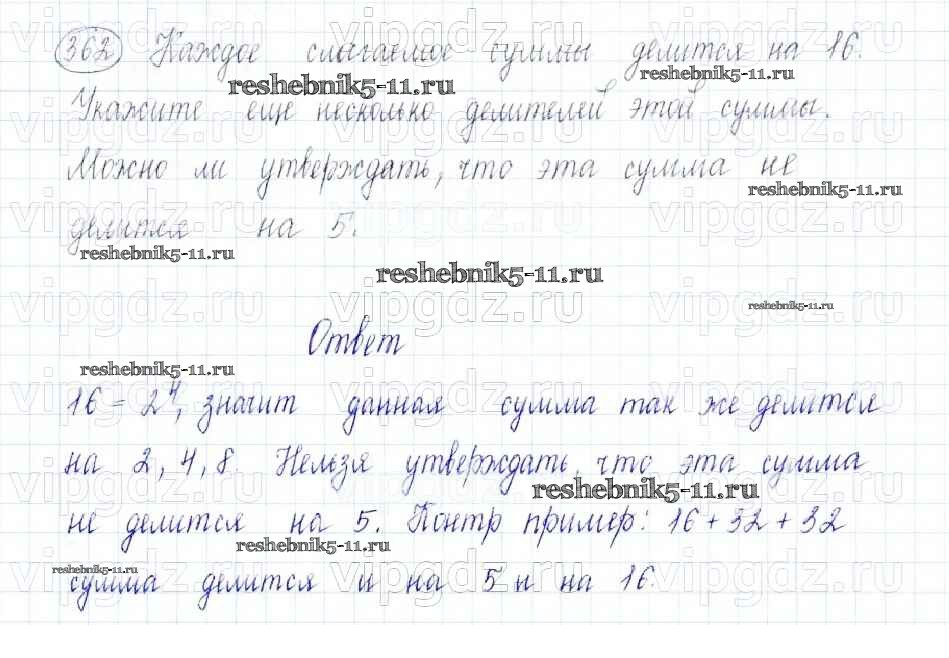 362 Каждое слагаемое суммы делится на 16.
Укажите еще несколько делителей этой суммы.
Можно ли утверждать, что эта сумма не
делится на 5.
Ответ
16 = 2⁴, значит данная сумма так же делится
на 2, 4, 8. Нельзя утверждать, что эта сумма
не делится на 5. Контр пример: 16 + 32 + 32
сумма делится и на 5 и на 16.
vipgdz.ru
reshebnik5-11.ru